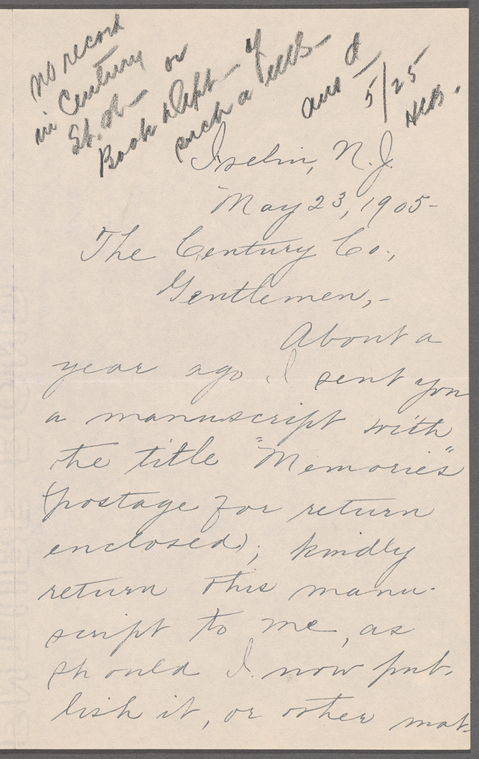 No record
in Century
St. N— or
Book Dept— of
such a
ans d
5/25
Iselin, N.J.
May 23, 1905-
The Century Co.,
Gentlemen,-
About a
year ago I sent you
a manuscript with
the title "Memories"
(postage for return
enclosed); kindly
return this manu-
script to me, as
should I now pub-
lish it, or other mat-